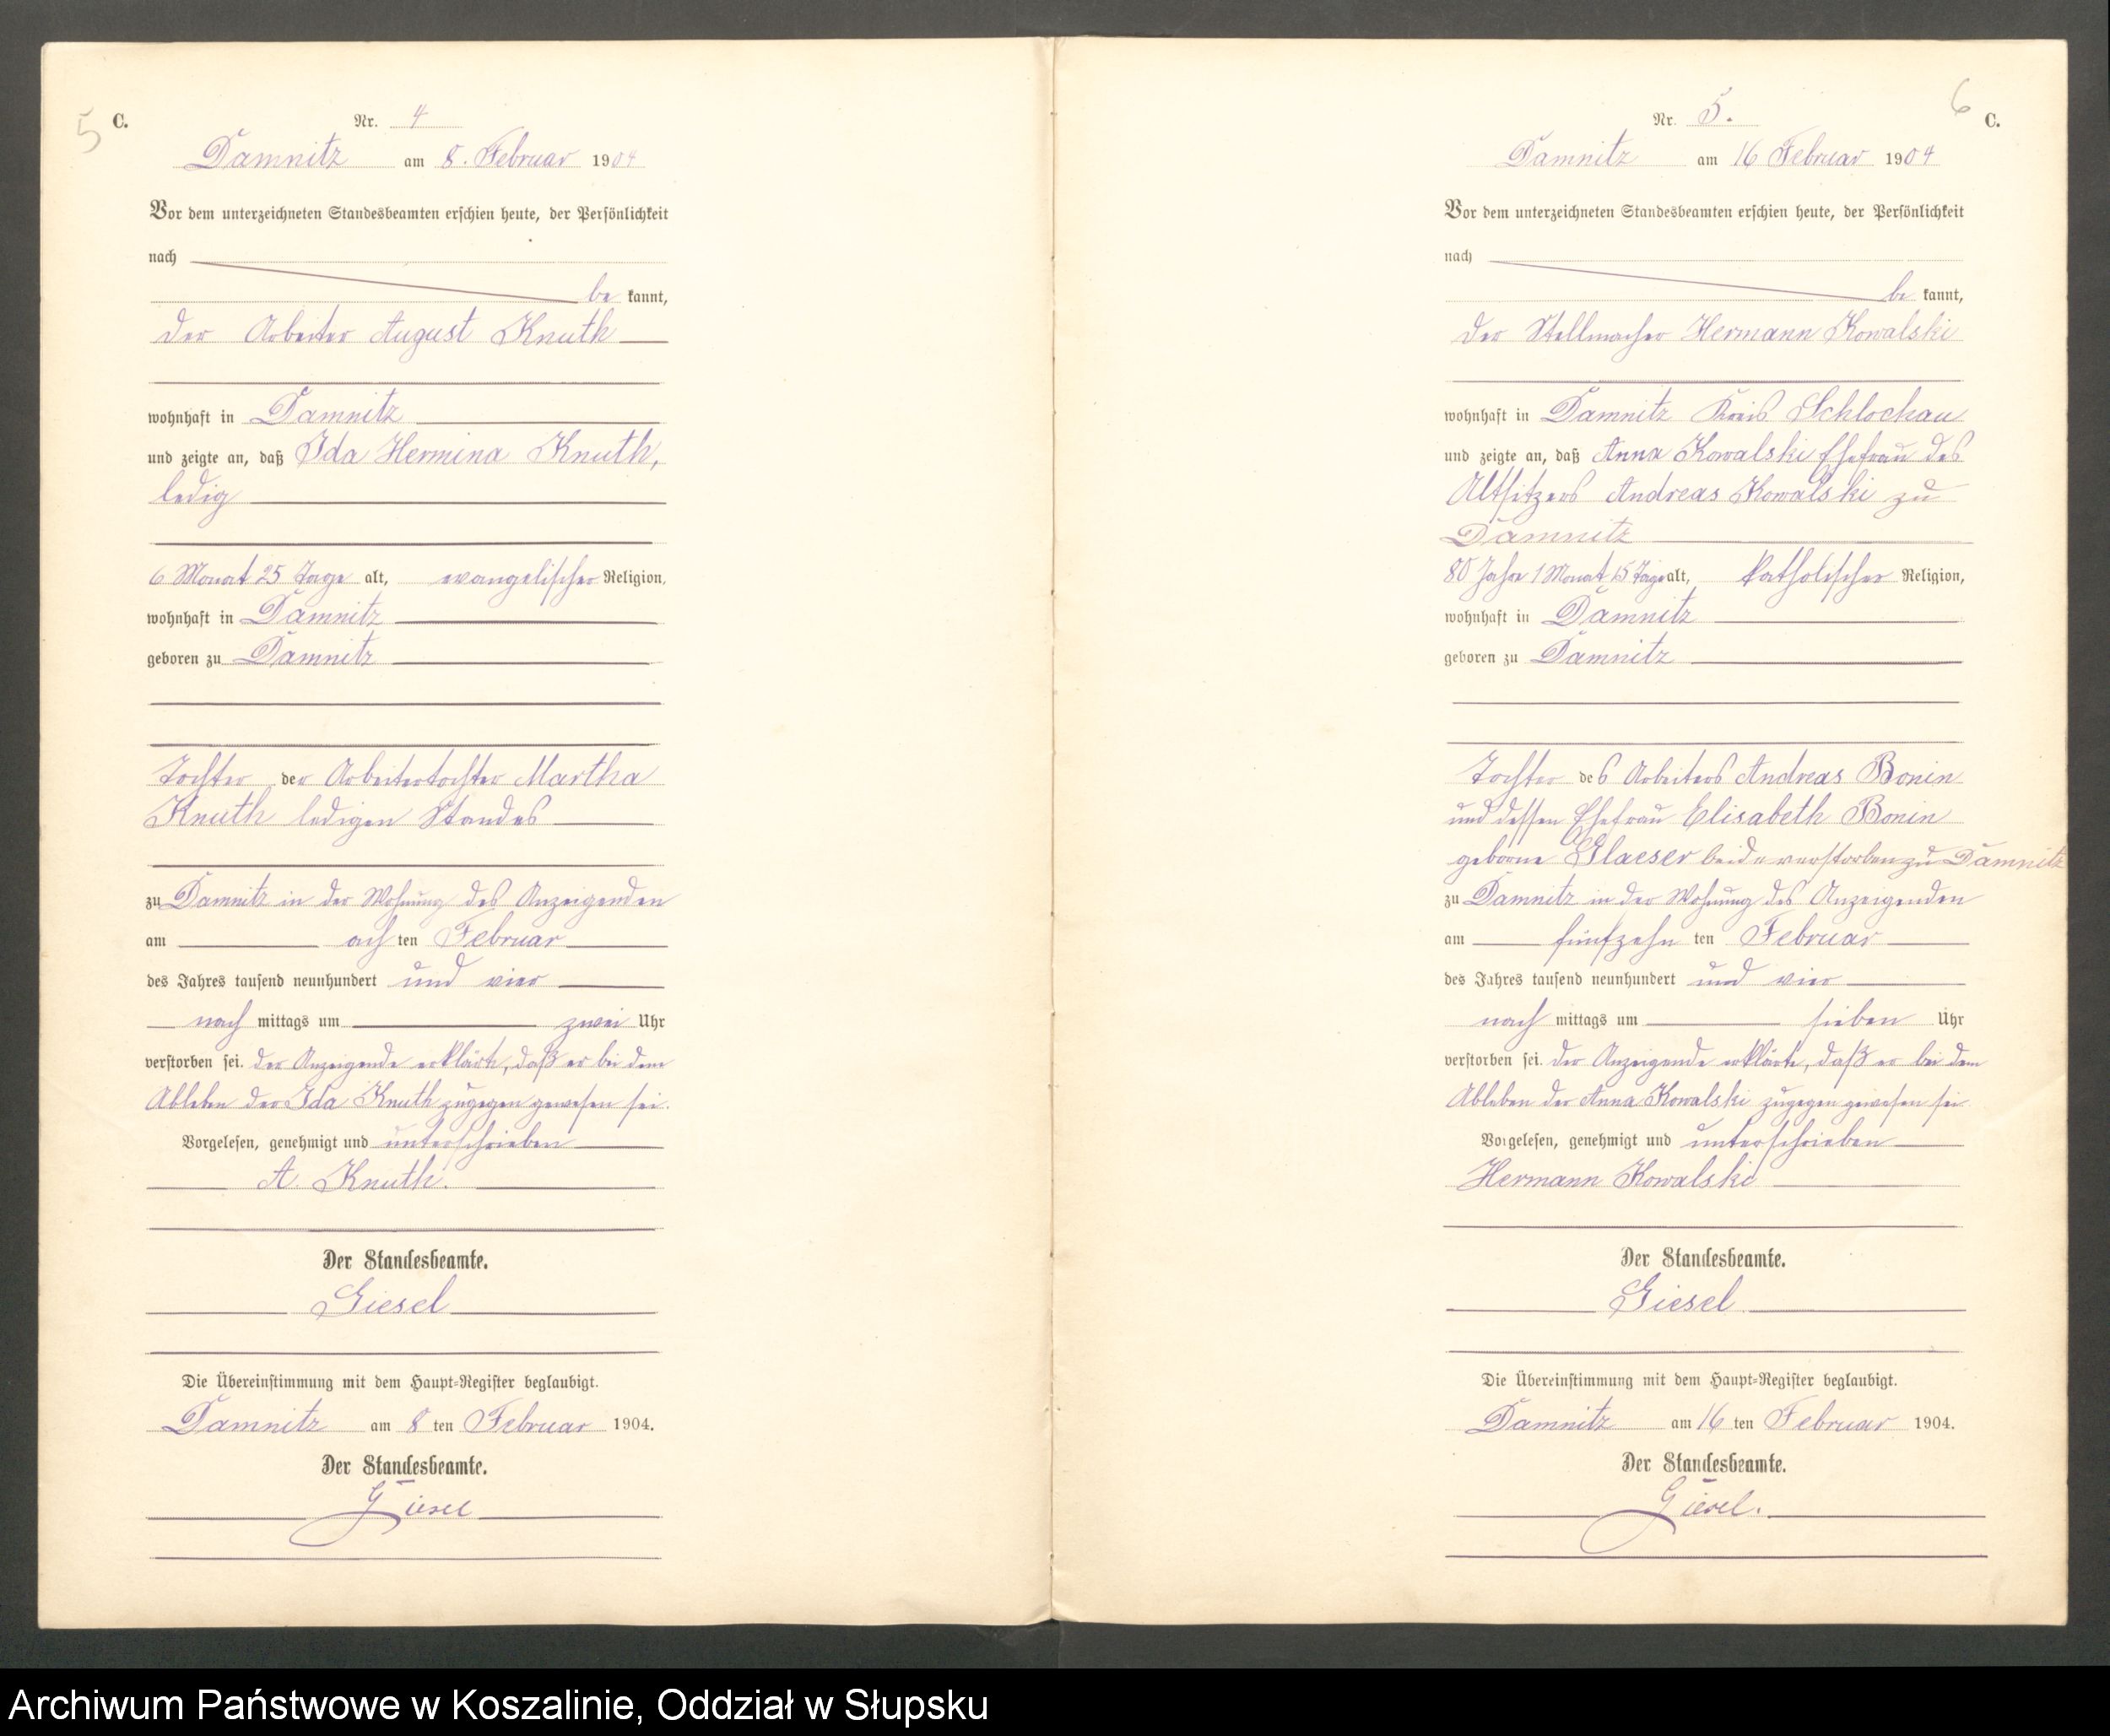 5 C.
Nr. 4
Damnitz am 8. Februar 1904
Vor dem unterzeichneten Standesbeamten erschien heute, der Persönlichkeit
nach
be kannt,
der Arbeiter August Knuth
wohnhaft in Damnitz
und zeigte an, daß Ida Hermina Knuth,
ledig
6 Monat 25 Tage alt, evangelischer Religion,
wohnhaft in Damnitz
geboren zu Damnitz
Tochter der Arbeitertochter Martha
Knuth ledigen Standes
zu Damnitz in der Wohnung des Anzeigenden
am achten Februar
des Jahres tausend neunhundert und vier
nach mittags um zwei Uhr
verstorben sei. der Anzeigende erklärte, daß er bei dem
Ableben der Ida Knuth zugegen gewesen sei.
Vorgelesen, genehmigt und unterschrieben
A. Knuth.
Der Standesbeamte.
Giesel
Die Übereinstimmung mit dem Haupt-Register beglaubigt.
Damnitz am 8 ten Februar 1904.
Der Standesbeamte.
Giesel
6 C.
Nr. 5.
Damnitz am 16 Februar 1904
Vor dem unterzeichneten Standesbeamten erschien heute, der Persönlichkeit
nach
be kannt,
der Stellmacher Hermann Kowalski
wohnhaft in Damnitz Kreis Schlochau
und zeigte an, daß Anna Kowalski Ehefrau des
Altsitzers Andreas Kowalski zu
Damnitz
80 Jahre 1 Monat 15 Tage alt, katholischer Religion,
wohnhaft in Damnitz
geboren zu Damnitz
Tochter des Arbeiters Andreas Bonin
und dessen Ehefrau Elisabeth Bonin
geborne Glaeser beide verstorben zu Damnitz
zu Damnitz in der Wohnung des Anzeigenden
am fünfzehn ten Februar
des Jahres tausend neunhundert und vier
nach mittags um sieben Uhr
verstorben sei. der Anzeigende erklärte, daß er bei dem
Ableben der Anna Kowalski zugegen gewesen sei
Vorgelesen, genehmigt und unterschrieben
Hermann Kowalski
Der Standesbeamte.
Giesel
Die Übereinstimmung mit dem Haupt-Register beglaubigt.
Damnitz am 16 ten Februar 1904.
Der Standesbeamte.
Giesel.
Archiwum Państwowe w Koszalinie, Oddział w Słupsku